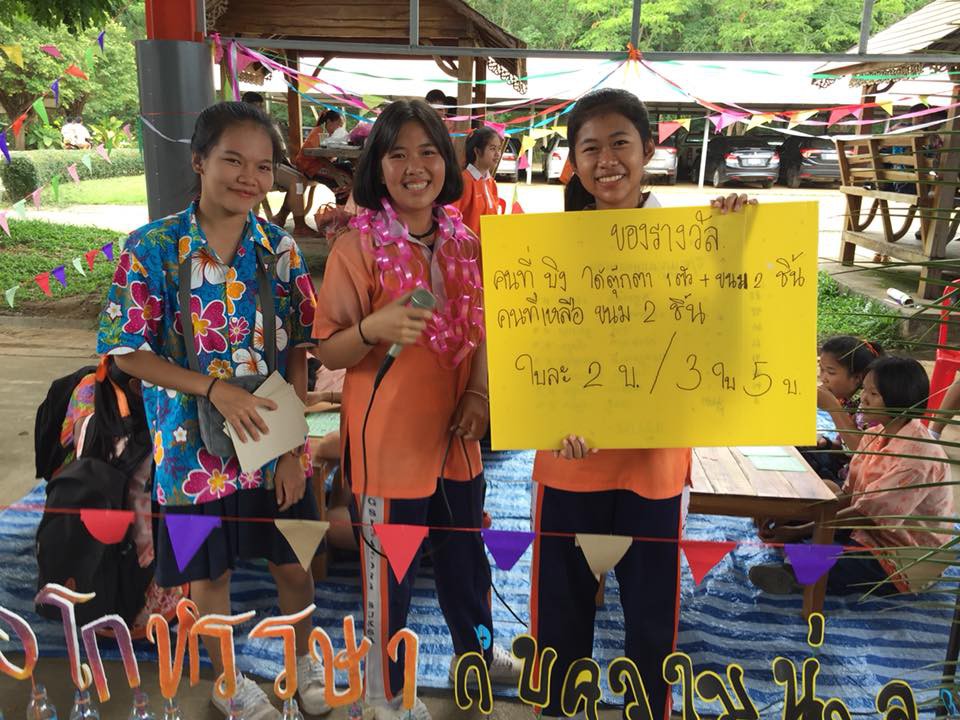 ของรางวัล.
คนที่ บิง ได้ตุ๊กตา 1 ตัว + ขนม 2 ชิ้น
คนที่เหลือ ขนม 2 ชิ้น
ใบละ 2 บ. / 3 ใบ 5 บ.
โกหรรษา กับความน่